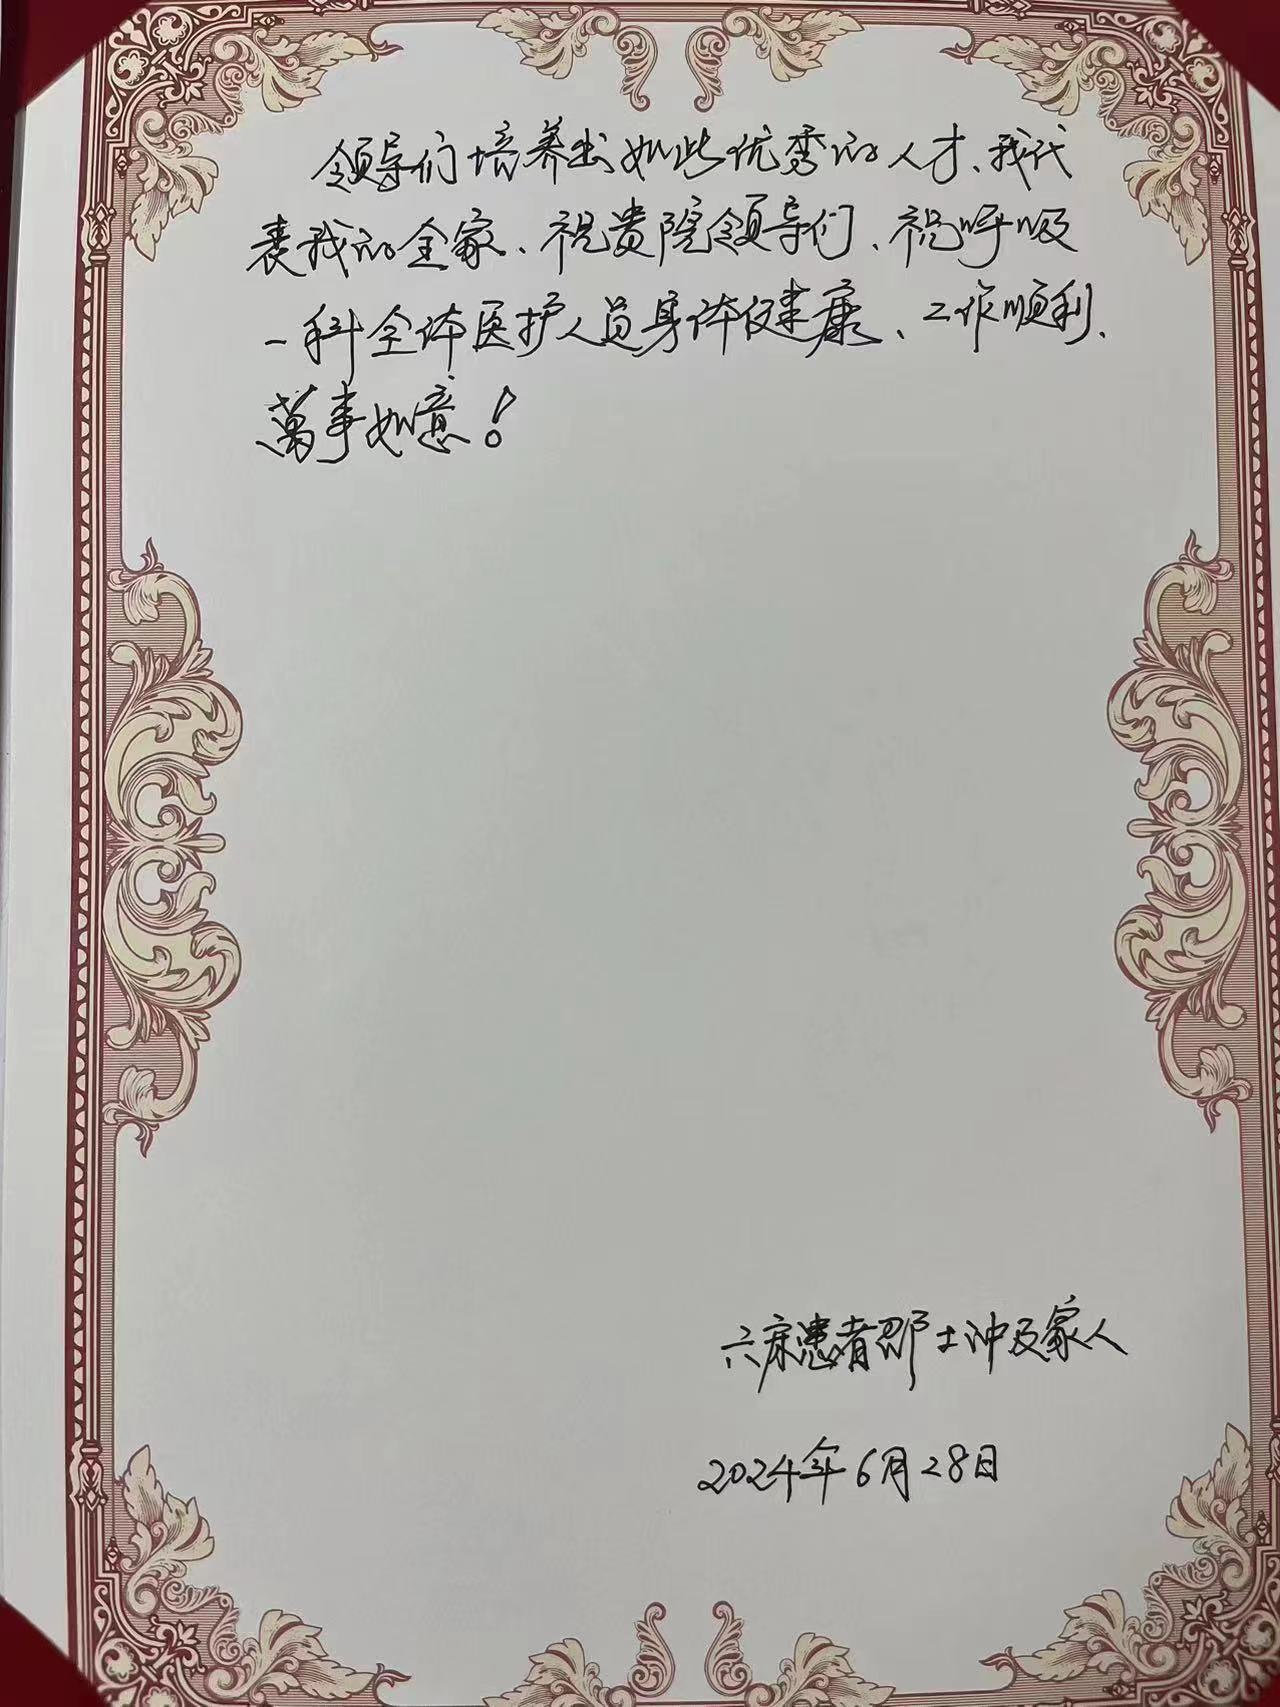 领导们培养出如此优秀的人才、我代
表我的全家、祝贵院领导们、祝呼吸
一科全体医护人员身体健康、工作顺利、
萬事如意!
六床患者邵士冲及家人
2024年6月28日